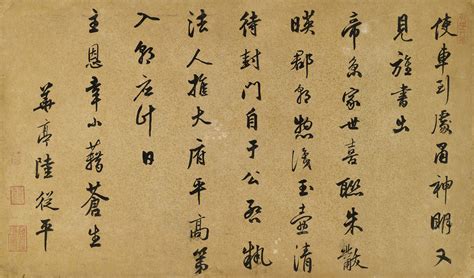 使車到處神明又
見旌書出
帝京家世喜聯朱黻
映郡朝惣玉壺清
待封門自于公啓執
法人推大府平高第
入朝應計日
主恩幸小藉蒼生
華亭陸從平